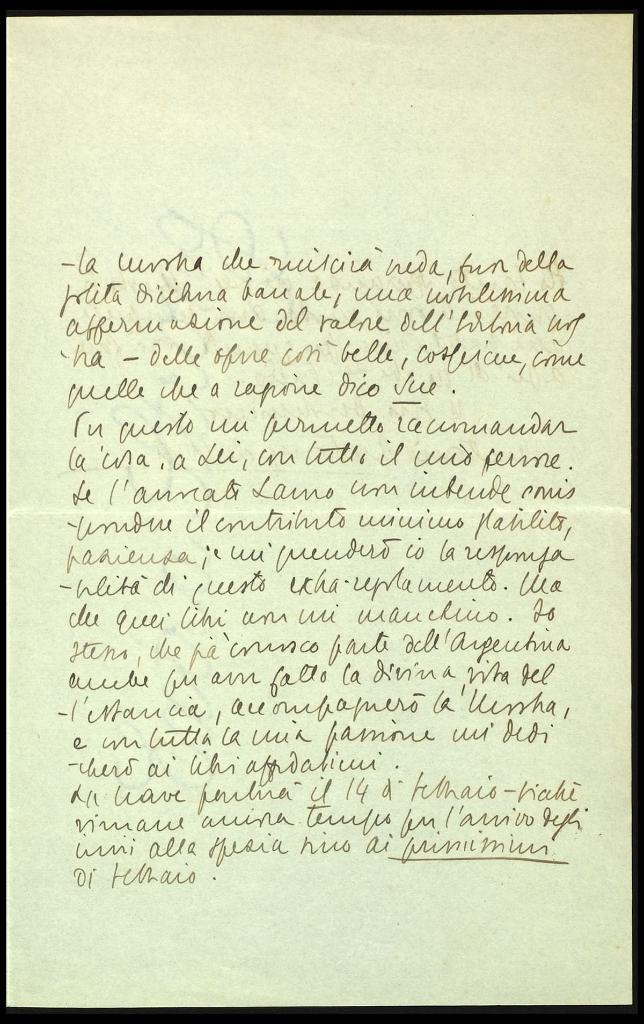 -la mostra che riuscirà nella, fuor della
solita diciamo banale, una nobilissima
affermazione del valore dell'Editoria nos
-tra - delle opere così belle, cospicue, come
quelle che a ragione dico Sue.
Per questo mi permetto raccomandar
la cosa, a Lei, con tutto il mio fervore.
Se l'avvocato Sarno non intende corris
-pondere il contributo minimo stabilito,
pazienza; e mi prenderò io la responsa
-bilità di questo extra-regolamento. Ma
che quei libri non mi manchino. Io
stesso, che già conosco parte dell'Argentina
anche per aver fatto la divina vita del
-l'estancia, accompagnerò la Mostra,
e con tutta la mia passione mi dedi
-cherò ai libri affidatimi.
La nave partirà il 14 di febbraio - sicché
rimane ancora tempo per l'arrivo degli
invii alla Spezia sino ai primissimi
di febbraio.